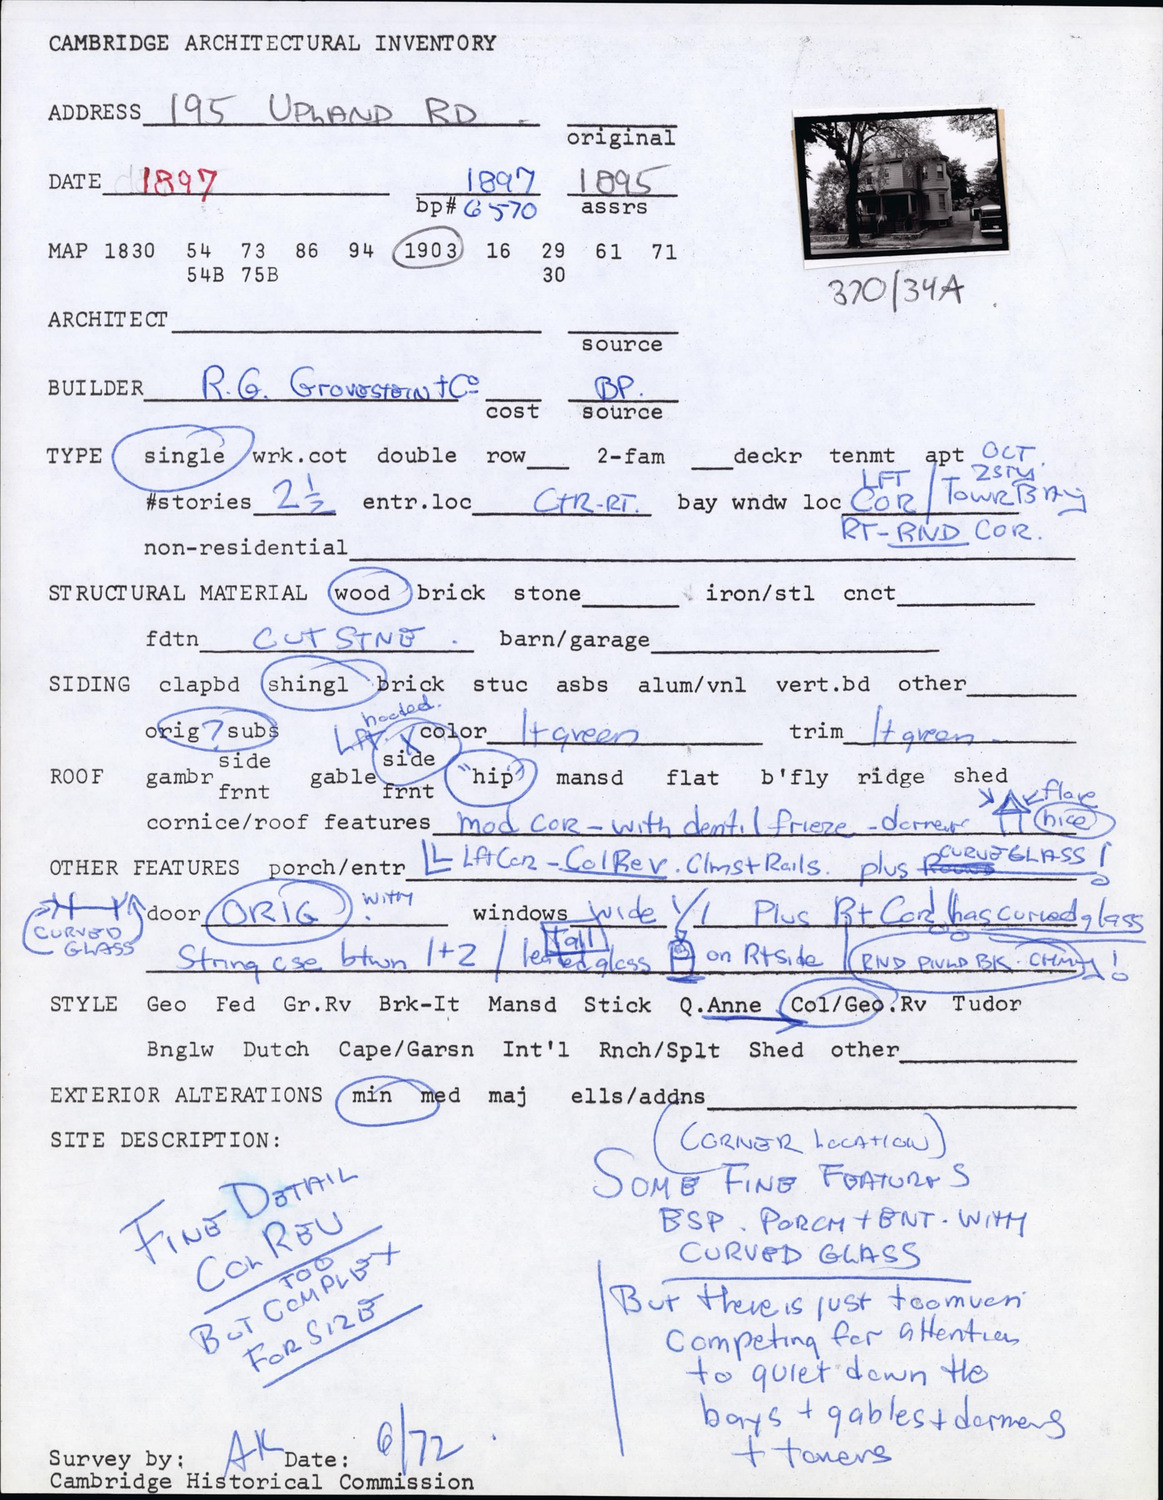 CAMBRIDGE ARCHITECTURAL INVENTORY
ADDRESS 195 UPLAND RD
original
DATE 1897 1897 1895
bp# 6570 assrs
370/34A
MAP 1830 54 73 86 94 1903 16 29 61 71
54B 75B 30
ARCHITECT
source
BUILDER R.G. GROVESTEIN + Co BP.
cost source
TYPE single wrk.cot double row 2-fam deckr tenmt apt OCT.
2STY
#stories 2½ entr.loc CTR-RT. bay wndw loc LFT COR / TOWR BAY
RT-RND COR.
non-residential
STRUCTURAL MATERIAL wood brick stone iron/stl cnct
fdtn CUT STNE. barn/garage
SIDING clapbd shingl brick stuc asbs alum/vnl vert.bd other
hooded.
orig ? subs LFT. color lt green trim lt green
side side
ROOF gambr gable "hip" mansd flat b'fly ridge shed
frnt frnt
flare
cornice/roof features mod cor - with dentil frieze - dormer nice
OTHER FEATURES porch/entr LftCor - Col Rev. Clmst Rails. plus CURVE GLASS!
door ORIG WITH windows wide 1/1 Plus Rt Cor has curved glass
CURVED
GLASS
String cse btwn 1+2 / Tall leaded glass on Rt side RND PNLD BK. CHMNY!
STYLE Geo Fed Gr.Rv Brk-It Mansd Stick Q.Anne Col/Geo.Rv Tudor
Bnglw Dutch Cape/Garsn Int'l Rnch/Splt Shed other
EXTERIOR ALTERATIONS min med maj ells/addns
SITE DESCRIPTION:
(CORNER LOCATION)
SOME FINE FEATURES
ESP. PORCH + ENT. WITH
CURVED GLASS
But there is just too much
competing for attention
to quiet down the
bays + gables + dormers
+ towers
FINE DETAIL
COL REV
BUT TOO COMPLEX
FOR SIZE
Survey by: AK Date: 6/72
Cambridge Historical Commission